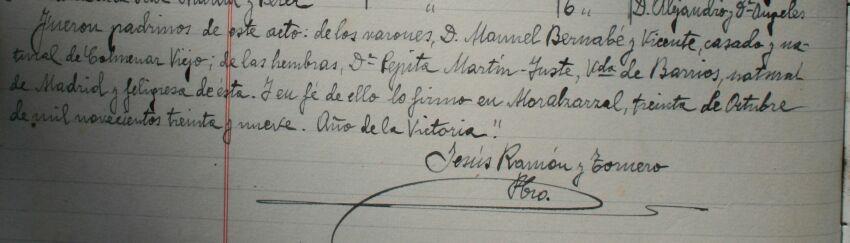 y Pérez " 16 " D. Alejandro y Dª Angeles
Fueron padrinos de este acto: de los varones, D. Manuel Bernabé y Vicente, casado y na-
tural de Colmenar Viejo; de las hembras, Dª Pepita Martín-Juste, Vda de Barrios, natural
de Madrid y feligresa de ésta. Y en fé de ello lo firmo en Moralzarzal, treinta de Octubre
de mil novecientos treinta y nueve. Año de la Victoria."
Jesús Ramón y Tornero
Pbro.